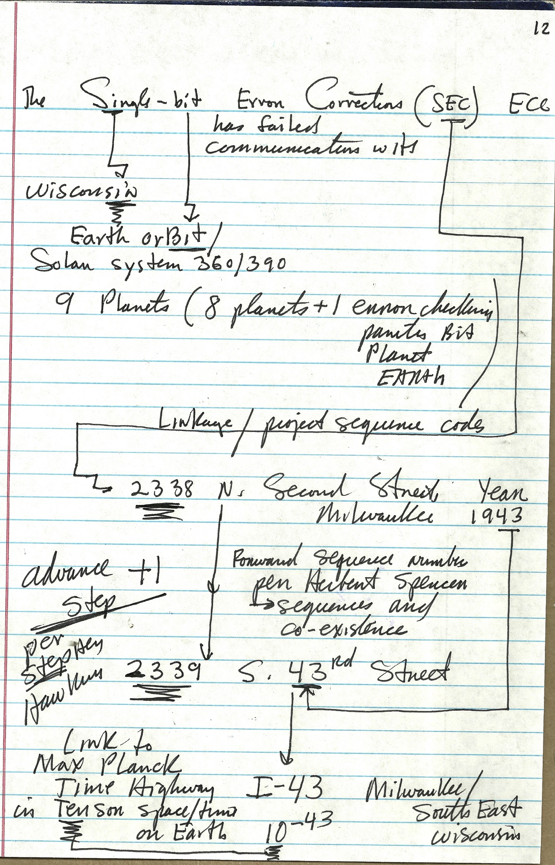 12
The Single-bit Error Corrections (SEC) ECC
has failed
communication with
Wisconsin
Earth orBit/
Solar system 360/390
9 Planets (8 planets + 1 error checking
parity Bit
Planet
EARth
Linkage/project sequence codes
2338 N. Second Street Year
Milwaukee 1943
advance +1
Step
per
Stephen
Hawkin
Forward sequence number
per Herbert Spencer
→ sequences and
co-existence
2339 S. 43rd Street
Link to
Max Planck
Time Highway I-43 Milwaukee/
in Tensor space/time South East
on Earth 10-43 Wisconsin